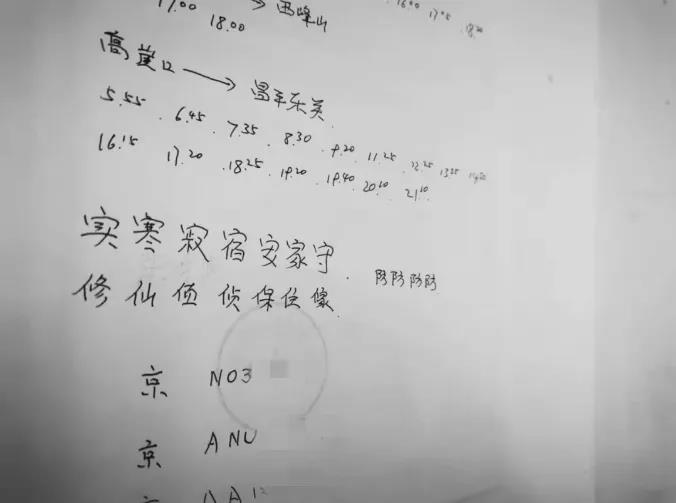 17.00 → 西峰山 16.00 17.05
18.00
高崖口 → 昌平东关
5.55 . 6.45 . 7.35 . 8.30 . 9.20 . 11.25 . 12.25
16.15 17.20 . 18.25 . 19.20 . 19.40 . 20.10 . 21.10
实寒寂宿安家守.
修仙值侦保住像. 防防防防
京 NO3
京 ANU